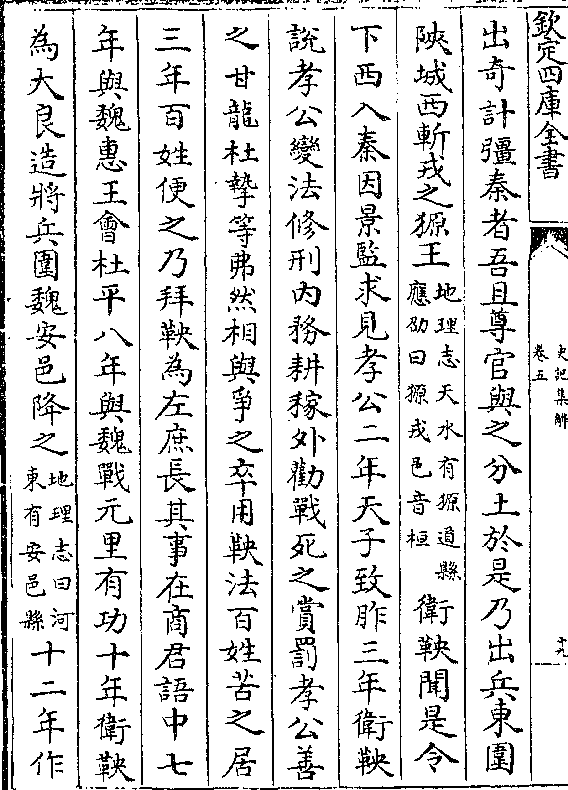 欽定四庫全書
史記集解
卷五
十九
出奇計彊秦者吾且尊官與之分土於是乃出兵東圍
陜城西斬戎之獂王地理志天水有獂道縣
應劭曰獂戎邑音桓
衛鞅聞是令
下西入秦因景監求見孝公二年天子致胙三年衛鞅
說孝公變法修刑内務耕稼外勸戰死之賞罰孝公善
之甘龍杜摯等弗然相與爭之卒用鞅法百姓苦之居
三年百姓便之乃拜鞅為左庶長其事在商君語中七
年與魏惠王會杜平八年與魏戰元里有功十年衛鞅
為大良造將兵圍魏安邑降之地理志曰河
東有安邑縣
十二年作